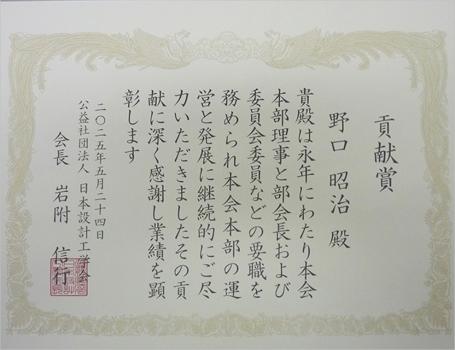 貢献賞
野口 昭治 殿
貴殿は永年にわたり本会
本部理事と部会長および
委員会委員などの要職を
務められ本会本部の運
営と発展に継続的にご尽
力いただきましたその貢
献に深く感謝し業績を顕
彰します
二〇二五年五月二十四日
公益社団法人 日本設計工学会
会長 岩附 信行